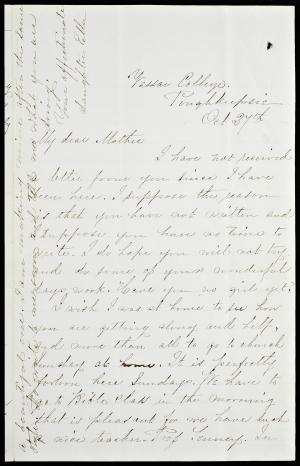 Vassar College.
Poughkeepsie
Oct 27th
My dear Mother
I have not received
a letter from you since I have
been here. I suppose the reason
is that you have not written and
I suppose you have no time to
write. I do hope you will not try
and do some of your wonderful
days work. Have you no girl yet?
I wish I was at home to see how
you are getting along and help,
and more than all to go to church
Sunday at home. It is perfectly
forlorn here Sundays. We have to
go to Bible class in the morning
that is pleasant for we have such
a nice teacher. Prof Tenney. In
a beautiful one. I am making mine after the same
you are
Your affectionate
daughter Ella